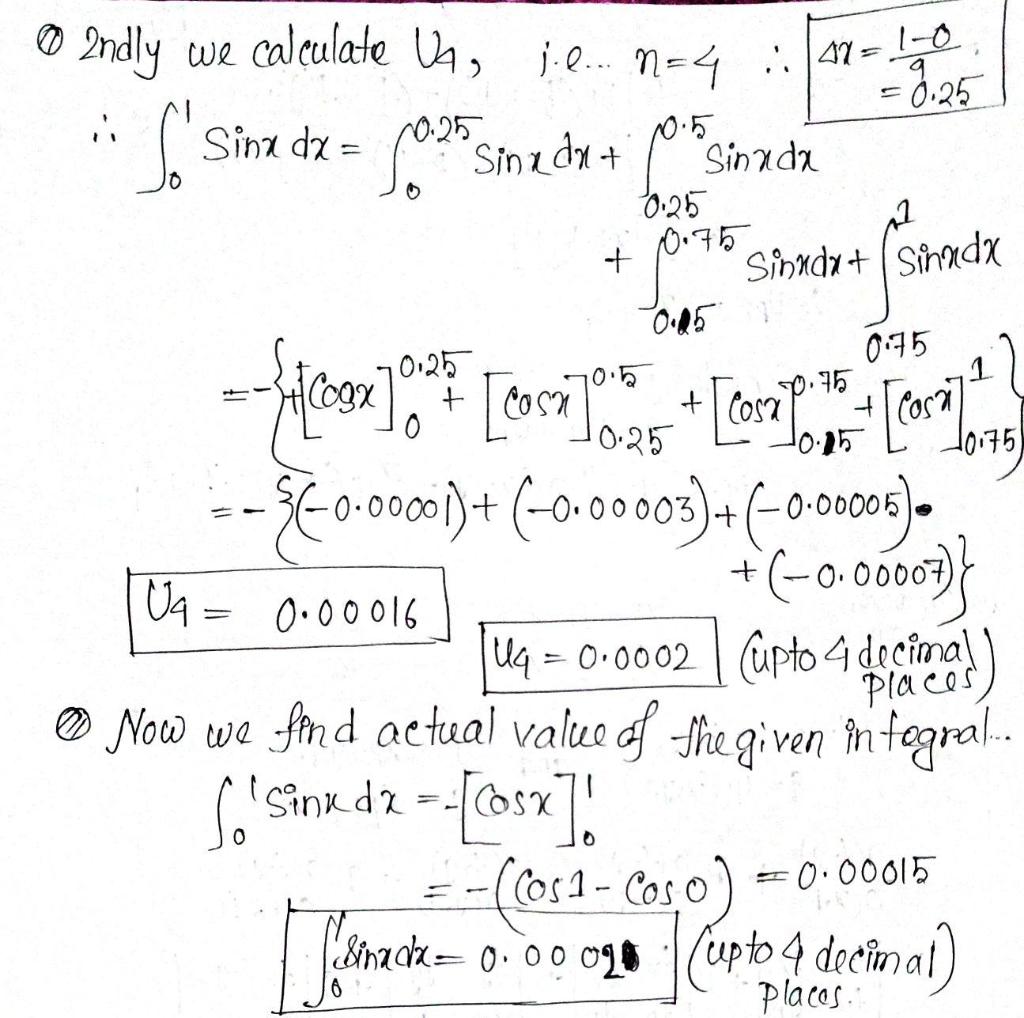 2ndly we calculate U4, i.e... n=4 ∴ Δx = (1-0)/4 = 0.25
∴ ∫₀¹ Sinx dx = ∫₀^0.25 Sinx dx + ∫_0.25^0.5 Sinx dx
+ ∫_0.25^0.75 Sinxdx + ∫_0.75^1 Sinxdx
= -{+[Cosx]₀^0.25 + [Cosx]_0.25^0.5 + [Cosx]_0.25^0.75 + [Cosx]_0.75^1}
= -{(-0.00001) + (-0.00003) + (-0.00005)
+ (-0.00007)}
U4 = 0.00016
U4 = 0.0002 (upto 4 decimal places)
Now we find actual value of the given integral...
∫₀¹ Sinx dx = -[Cosx]₀¹
= -(Cos1 - Cos0) = 0.00015
∫₀¹ Sinxdx = 0.0002 (upto 4 decimal places.)